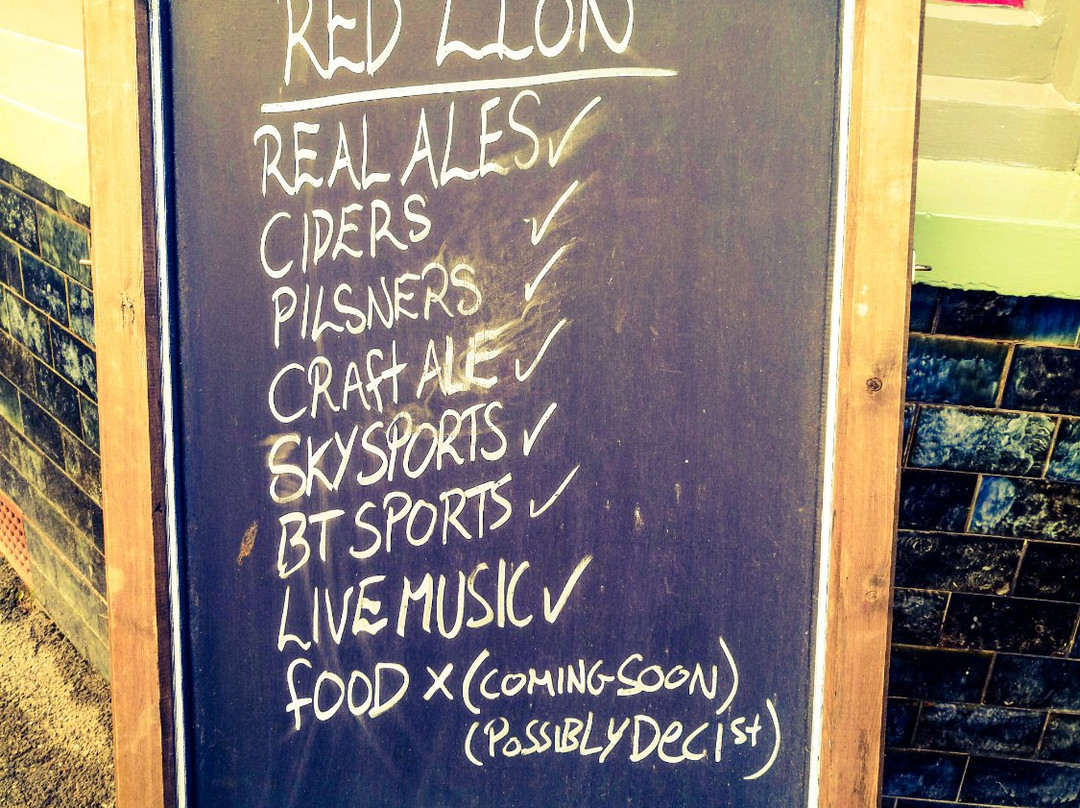 RED LION
REAL ALES ✓
CIDERS ✓
PILSNERS ✓
CRAft ALE ✓
SKY SPORTS ✓
BT SPORTS ✓
LIVE MUSIC ✓
fOOD X (COMING SOON)
(POSSIBLY Dec 1st)